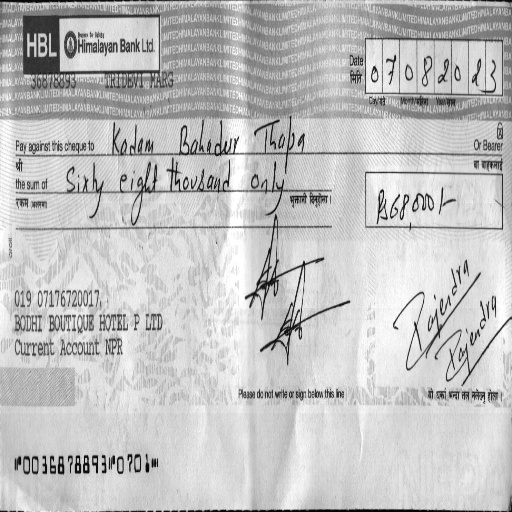 HBL Himalayan Bank Ltd.
36878893 TRIDEVI MARG
Date मिति 07082023
Day/गते Month/महिना Year/साल
Pay against this cheque to Kadam Bahadur Thapa Or Bearer
श्री वा वाहकलाई
the sum of Sixty eight thousand only
रकम अक्षरमा भुक्तानी दिनुहोला ।
Rs 68,000/-
019 07176720017
BODHI BOUTIQUE HOTEL P LTD
Current Account NPR
Rajendra
Rajendra
Please do not write or sign below this line
⑈0036878893⑈0701⑈